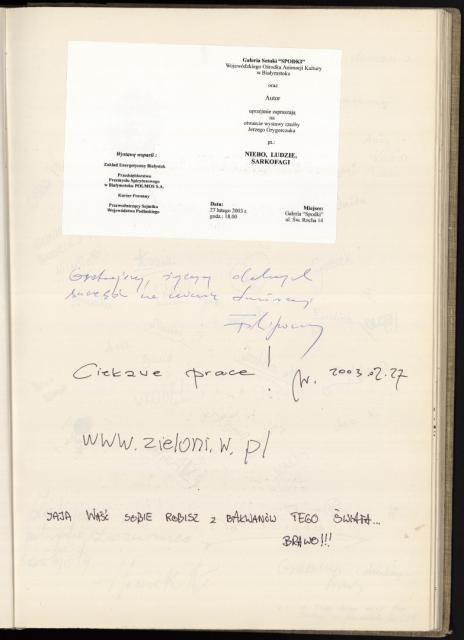 Galeria Sztuki "SPODKI"
Wojewódzkiego Ośrodka Animacji Kultury
w Białymstoku
oraz
Autor
uprzejmie zapraszają
na
otwarcie wystawy rzeźby
Jerzego Grygorczuka
pt.:
NIEBO, LUDZIE,
SARKOFAGI
Wystawę wsparli :
Zakład Energetyczny Białystok
Przedsiębiorstwo
Przemysłu Spirytusowego
w Białymstoku POLMOS S.A.
Kurier Poranny
Przewodniczący Sejmiku
Województwa Podlaskiego
Data:
27 lutego 2003 r.
godz.: 18.00
Miejsce:
Galeria "Spodki"
ul. Św. Rocha 14
życzę dalszych
sukcesów na
Ciekawe prace! 2003.02.27
www.zieloni.w.pl
JAJA WAŚĆ SOBIE ROBISZ Z BAŁWANÓW TEGO ŚWIATA...
BRAWO!!!